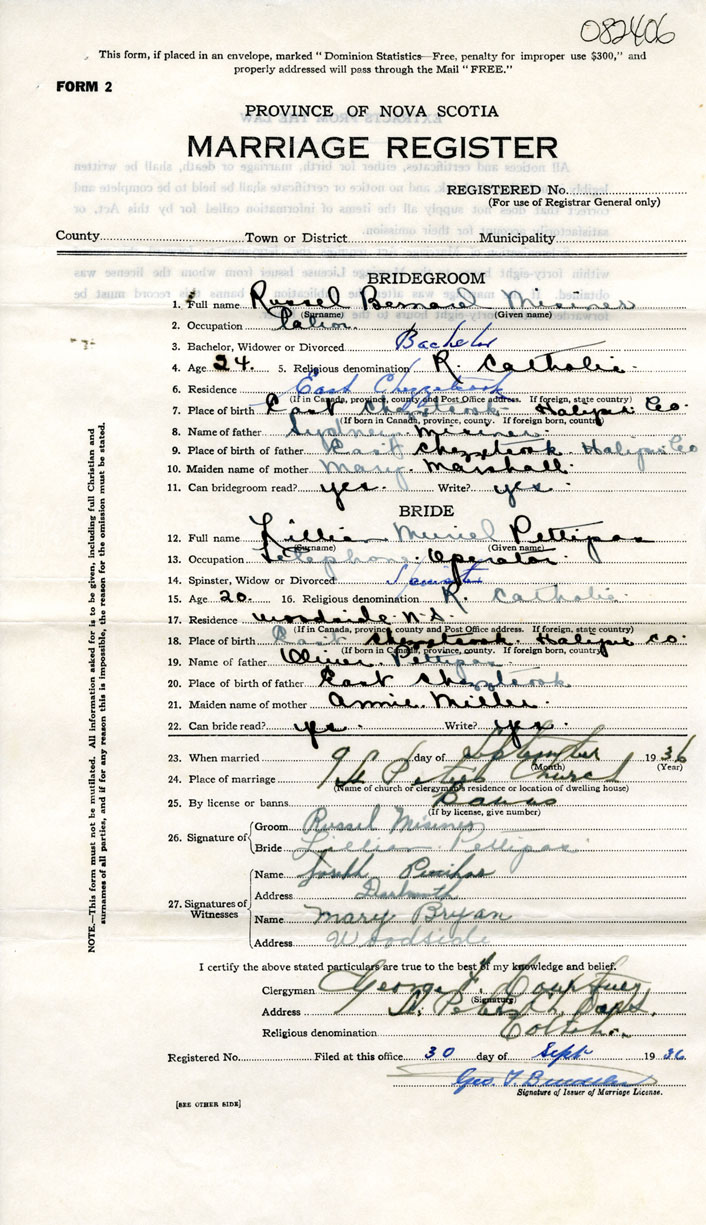 082406
This form, if placed in an envelope, marked "Dominion Statistics—Free, penalty for improper use $300," and
properly addressed will pass through the Mail "FREE."
FORM 2
PROVINCE OF NOVA SCOTIA
MARRIAGE REGISTER
REGISTERED No.
(For use of Registrar General only)
County Town or District Municipality
BRIDEGROOM
1. Full name Russel Bernard Misener
(Surname) (Given name)
2. Occupation
3. Bachelor, Widower or Divorced Bachelor
4. Age 24. 5. Religious denomination R. Catholic.
6. Residence East Chezzetcook
(If in Canada, province, county and Post Office address. If foreign, state country)
7. Place of birth East Chezzetcook Halifax Co.
(If born in Canada, province, county. If foreign born, country)
8. Name of father Sydney Misener
9. Place of birth of father East Chezzetcook Halifax Co
10. Maiden name of mother Mary Marshall.
11. Can bridegroom read? yes. Write? yes
BRIDE
12. Full name Lillian Muriel Pettipas
(Surname) (Given name)
13. Occupation Telephone Operator.
14. Spinster, Widow or Divorced Spinster
15. Age 20. 16. Religious denomination R. Catholic.
17. Residence Woodside N.S.
(If in Canada, province, county and Post Office address. If foreign, state country)
18. Place of birth East Chezzetcook Halifax Co.
(If born in Canada, province, county. If foreign born, country)
19. Name of father Oliver Pettipas
20. Place of birth of father East Chezzetcook
21. Maiden name of mother Annie Miller.
22. Can bride read? yes. Write? yes.
23. When married 9 day of September 1936
(Month) (Year)
24. Place of marriage St Peters Church
(Name of church or clergyman's residence or location of dwelling house)
25. By license or banns Banns
(If by license, give number)
26. Signature of
Groom Russel Misener
Bride Lillian Pettipas
27. Signatures of Witnesses
Name Joseph
Address Dartmouth
Name Mary Bryan
Address Woodside
I certify the above stated particulars are true to the best of my knowledge and belief.
Clergyman George F.
(Signature)
Address St. Peters Ch.
Religious denomination
Registered No. Filed at this office 30 day of Sept 1936
Geo. T.
Signature of Issuer of Marriage License.
[SEE OTHER SIDE]
NOTE.—This form must not be mutilated. All information asked for is to be given, including full Christian and
surnames of all parties, and if for any reason this is impossible, the reason for the omission must be stated.